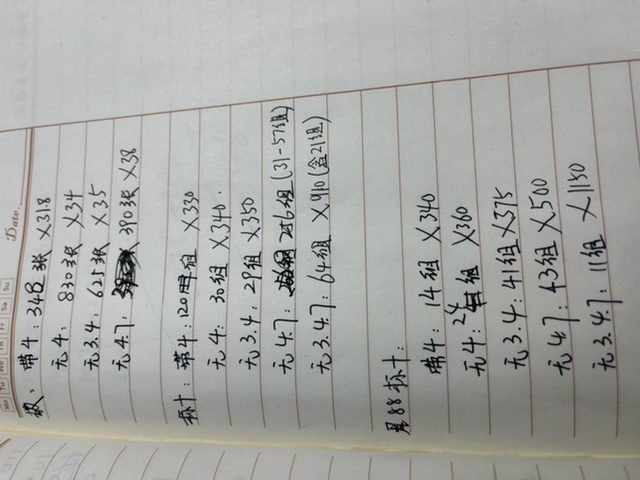 Date.
Mo Tu We Th Fr Sa Su
散: 带4: 348张 X31.8
无4: 830张 X34
无3.4: 625张 X35
无4.7: 390张 X38
标十: 带4: 120组 X330
无4: 30组 X340.
无3.4: 29组 X350
无4.7: 26组 (31-57组)
无3.4.7: 64组 X910 (含21组)
尾88标十:
带4: 14组 X340
无4: 24组 X360
无3.4: 41组 X375
无4.7: 43组 X500
无3.4.7: 11组 X1150